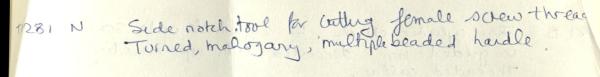 1281 N Side notch.tool for cutting female screw threa
Turned, mahogany, multiple beaded handle.